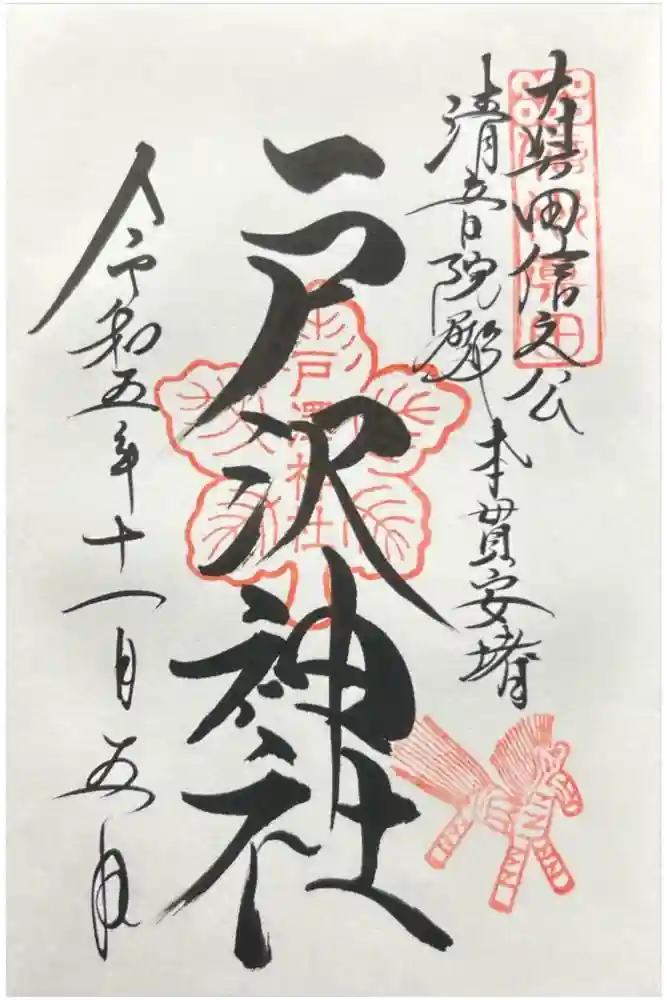 真田信之公
信州真田
清音院殿 本貫安堵
戸沢神社
戸澤神社
令和五年十一月五日